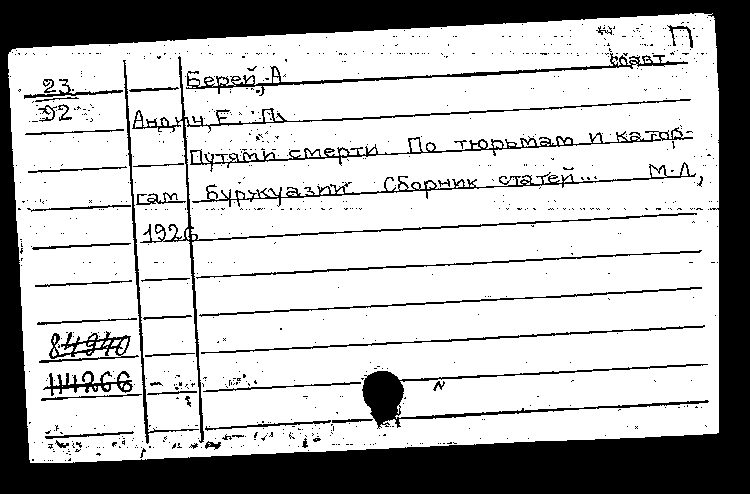 П
Берей, А
соавт.
23
92
Андич, Е. П.
Путями смерти. По тюрьмам и катор-
гам буржуазии. Сборник статей... М-Л,
1926
84940
114266